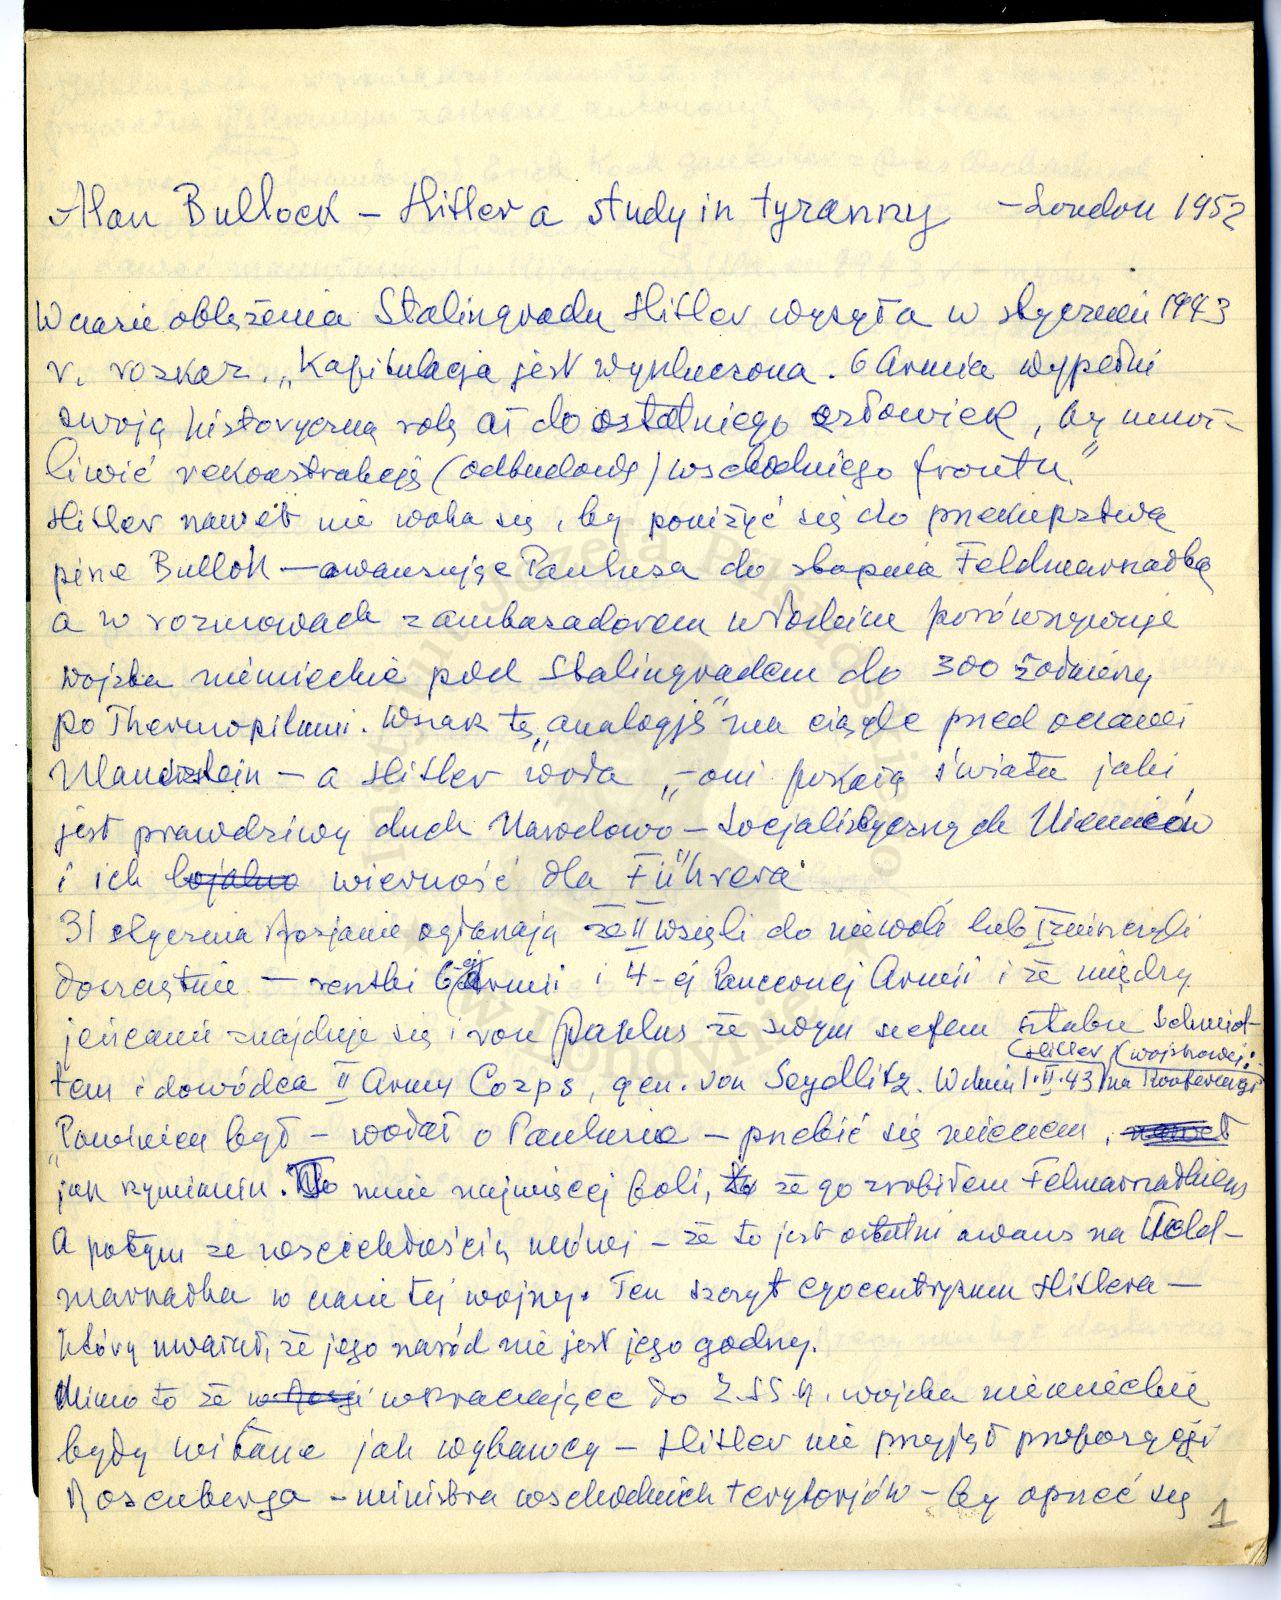 Alan Bullock – Hitler a study in tyranny – London 1952
W czasie oblężenia Stalingradu Hitler wysyła w styczniu 1943
r. rozkaz. „Kapitulacja jest wykluczona. 6 Armia wypełni
swoją historyczną rolę aż do ostatniego człowieka, by umoż-
liwić rekonstrukcję (odbudowę) wschodniego frontu."
Hitler nawet nie waha się, by poniżyć się do przekupstwa
pisze Bullok – awansując Paulusa do stopnia Feldmarszałka
a w rozmowach z ambasadorem włoskim porównywuje
wojska niemieckie pod Stalingradem do 300 żołnierzy
po Thermopilami. Wszak tę „analogję" ma ciągle przed oczami
Manstein – a Hitler woła „– oni pokażą światu jaki
jest prawdziwy duch Narodowo – Socjalistycznych Niemców
i ich lojalno wierność dla Führera"
31 stycznia Rosjanie ogłaszają że wzięli do niewoli lub zniszczyli
doszczętnie – resztki 6-ej Armii i 4-ej Pancernej Armii i że między
jeńcami znajduje się i von Paulus ze swym szefem sztabu Schmidt-
(Hitler) (wojskowej:
tem i dowódca II Army Corps, gen. von Seydlitz. W dniu 1.II.43 na Konferencji
„Powinien był – wołał o Paulusie – przebić się mieczem, nawet
jak rzymianin. To mnie najwięcej boli, to że go zrobiłem Felmarszałkiem
A potym ze wściekłością mówi – że to jest ostatni awans na Feld-
marszałka w czasie tej wojny. Ten szczyt egocentryzmu Hitlera –
który uważał, że jego naród nie jest jego godny.
Mimo to że w Rosji wkraczające do Z.S.S.R. wojska niemieckie
były witane jak wybawcy – Hitler nie przyjął propozycji
Rosenberga – ministra wschodnich terytorjów – by oprzeć się
1
Instytut Józefa Piłsudskiego
w Londynie